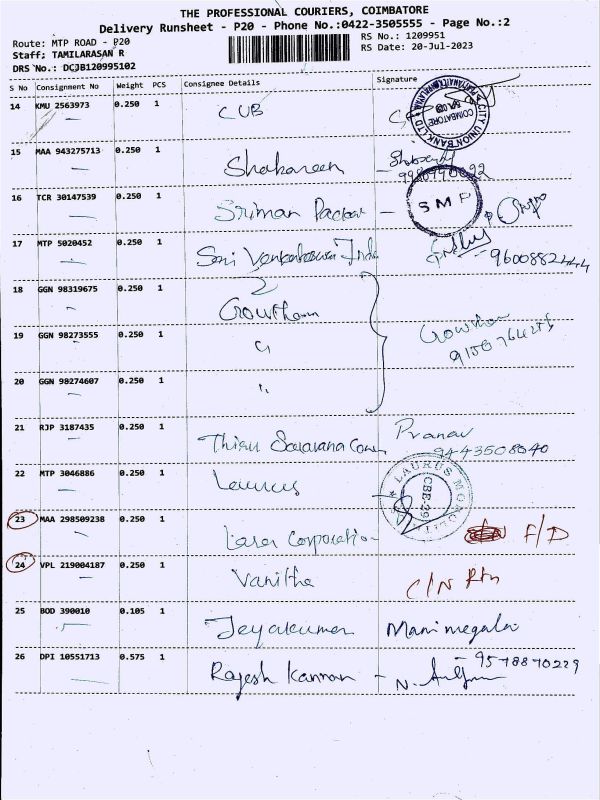 THE PROFESSIONAL COURIERS, COIMBATORE
Delivery Runsheet - P20 - Phone No.:0422-3505555 - Page No.:2
Route: MTP ROAD - P20
RS No.: 1209951
Staff: TAMILARASAN R
RS Date: 20-Jul-2023
DRS No.: DCJB120995102
S No Consignment No Weight PCS Consignee Details Signature
14 KMU 2563973 0.250 1 CUB
CITY UNION BANK LTD COIMBATORE
15 MAA 943275713 0.250 1
16 TCR 30147539 0.250 1 Sriman SMP
17 MTP 5020452 0.250 1 9600882444
18 GGN 98319675 0.250 1 Gowtham
19 GGN 98273555 0.250 1 Gowtham
20 GGN 98274607 0.250 1
21 RJP 3187435 0.250 1 Thiru Saravana Pranav
9443508040
22 MTP 3046886 0.250 1 Laurus LAURUS CBE-29
23 MAA 298509238 0.250 1 Laser Corporation F/D
24 VPL 219004187 0.250 1 Vanitha C/N Rtn
25 BOD 390010 0.105 1 Jeyakumar Manimegalai
26 DPI 10551713 0.575 1 Rajesh Kannan - 9578870229